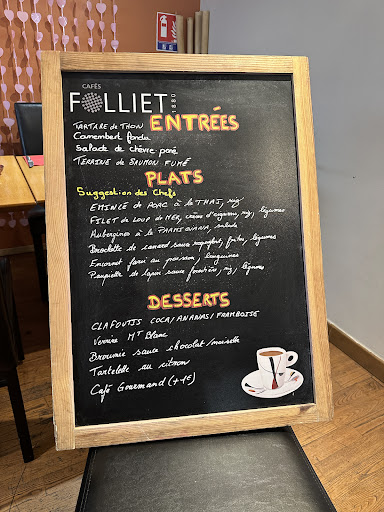 CAFÉS
FOLLIET
1880
ENTRÉES
TARTARE de THON
Camembert fondu
Salade de chèvre pané
TERRINE de SAUMON FUMÉ
PLATS
Suggestion des Chefs
EMINCÉ de PORC à la THAI, riz
FILET de LOUP de MER, crème d'oignon, riz, légumes
Aubergines à la PARMIGIANA, salade
Brochette de canard sauce roquefort, frites, légumes
Encornet farci au poisson, linguines
Paupiette de lapin sauce forestière, riz, légumes
DESSERTS
CLAFOUTIS COCO/ANANAS/FRAMBOISE
Verrine Mt Blanc
Brownie sauce chocolat/noisette
Tartelette au citron
Café Gourmand (+1€)